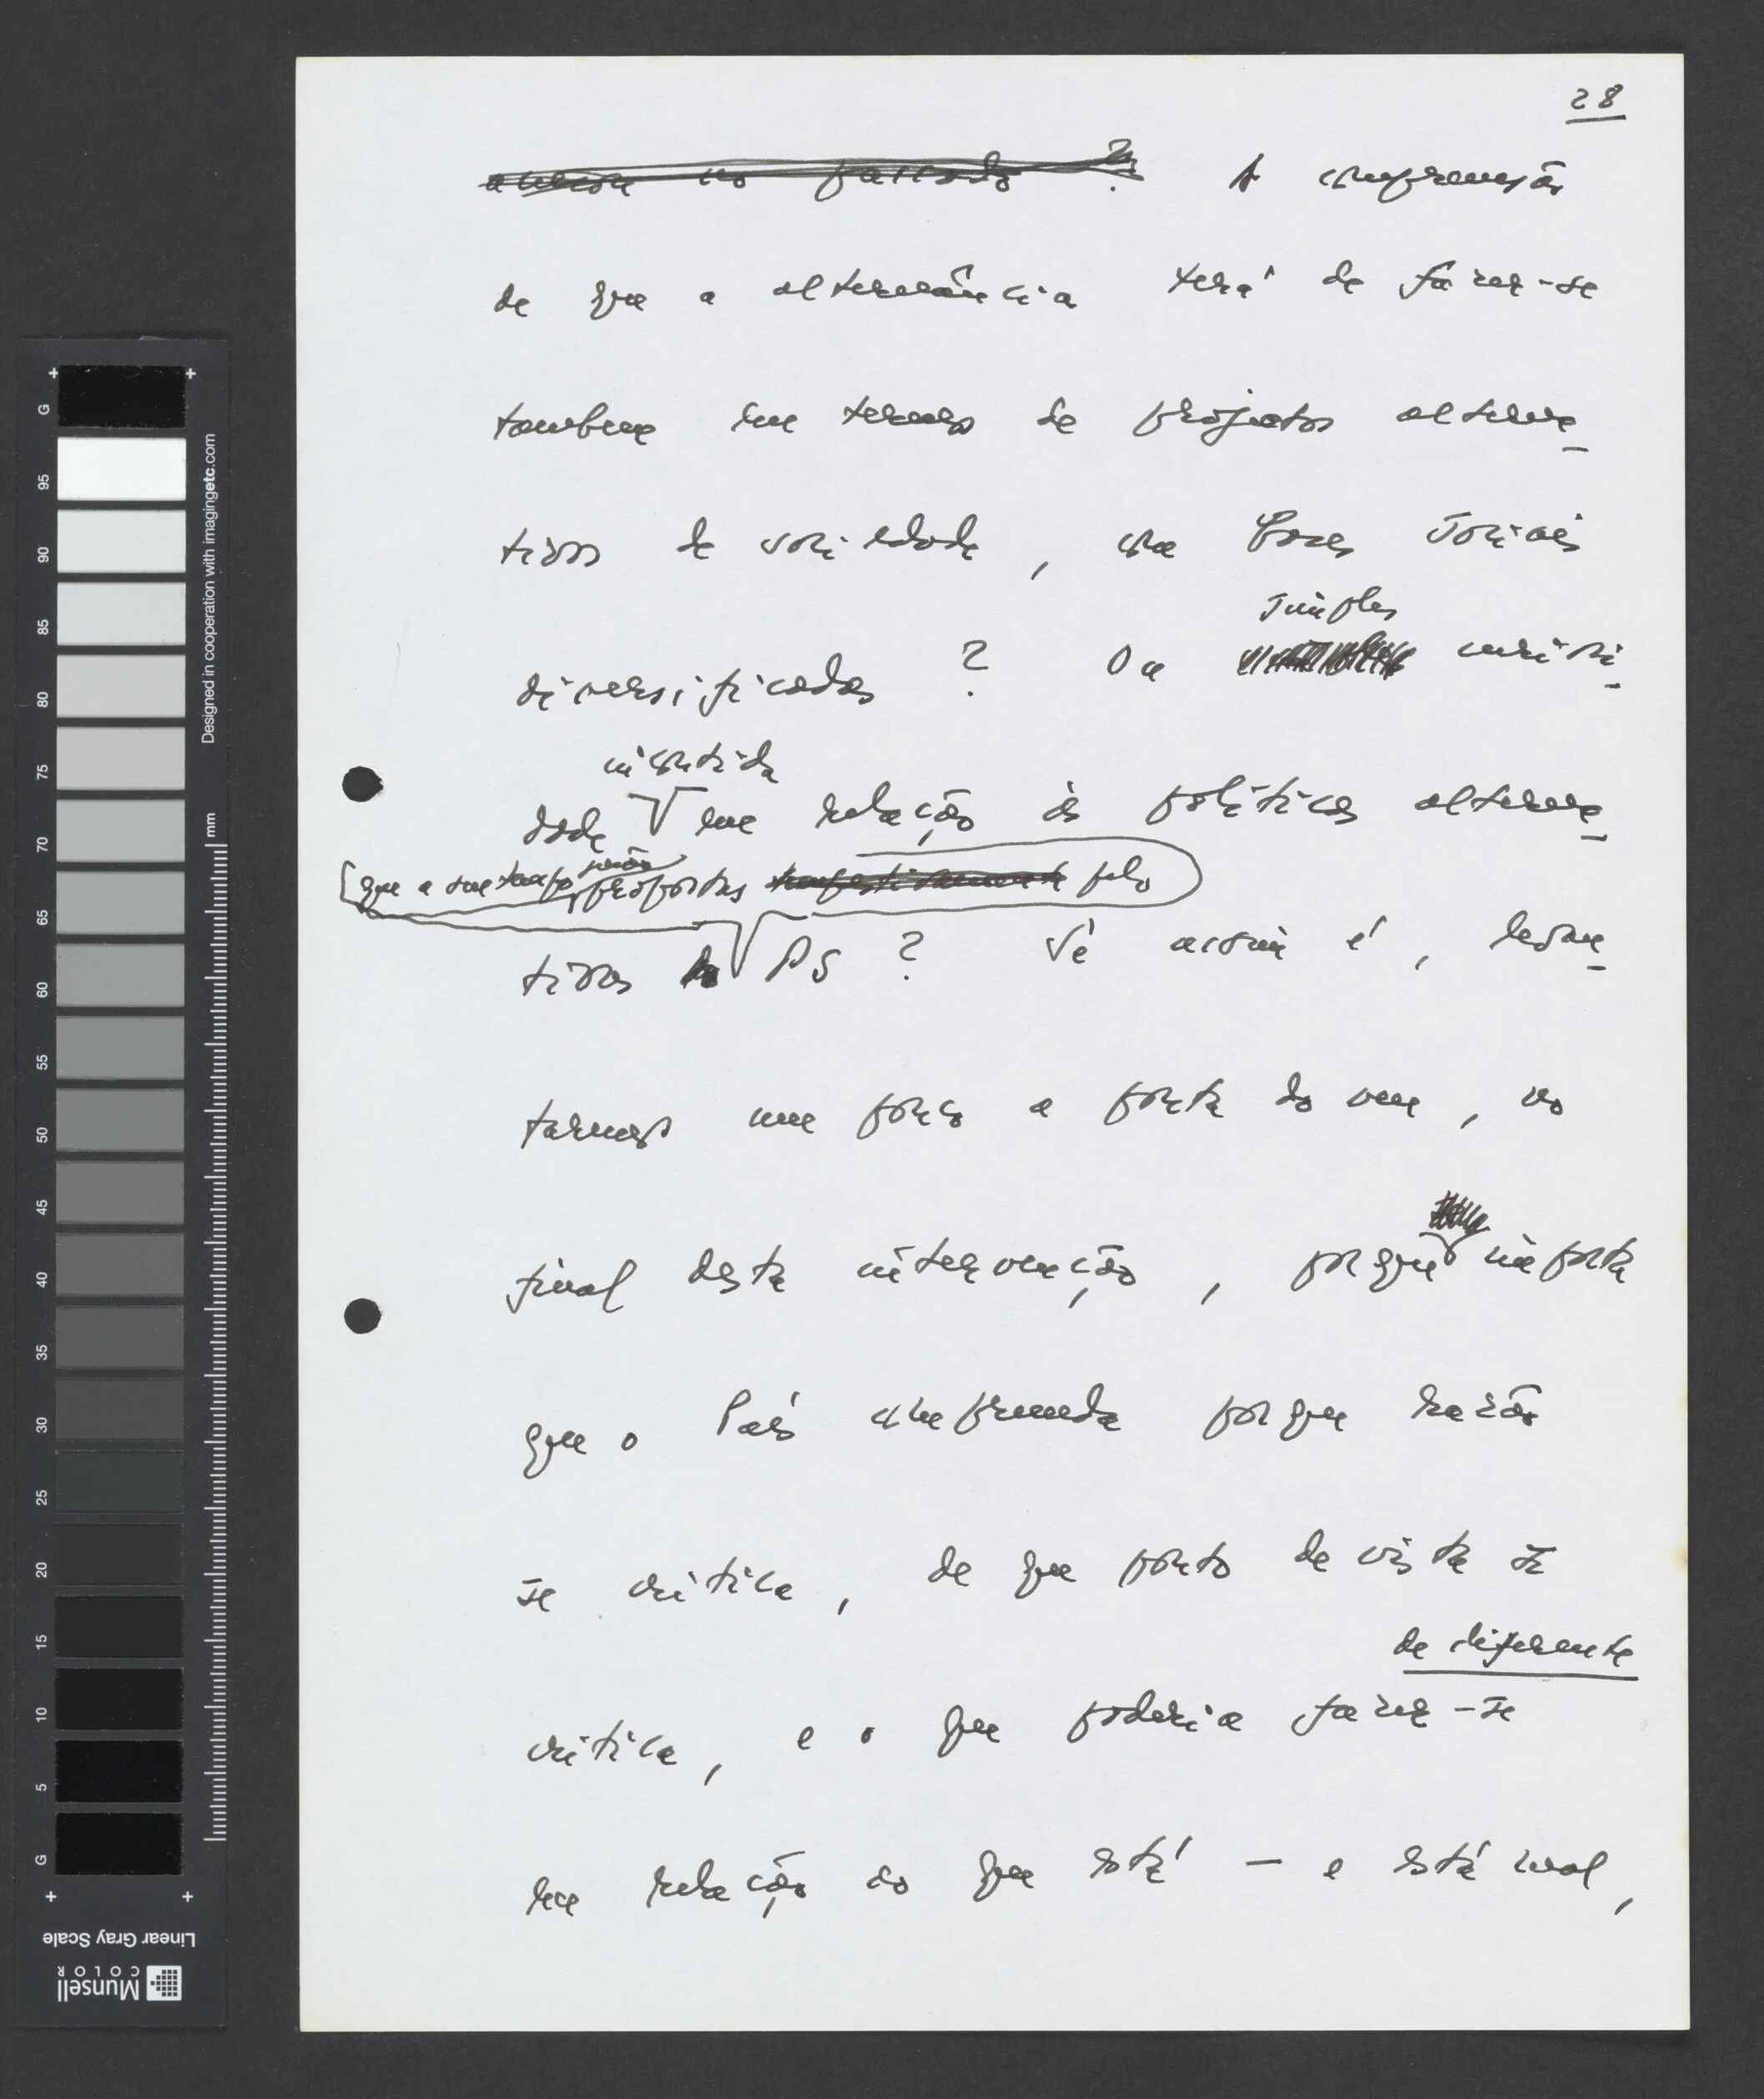 28
no passado ? A compreensão
de que a alternância terá de fazer-se
também em termos de projectos alterna-
tivos de sociedade, com bases sociais
diversificadas ? Ou simples curiosi-
dade insatisfeita em relação às políticas alterna-
que a seu tempo serão propostas pelo
tivas PS ? Se assim é, levan-
taremos um pouco a ponta do véu, no
final desta intervenção, porque importa
que o País compreenda por que razão
se critica, de que ponto de vista se
critica, e o que poderia fazer-se de diferente
em relação ao que está — e está mal,
G 95 90 85 80 75 70 65 60 55 50 45 40 35 30 25 20 15 10 5 G
Designed in cooperation with imagingetc.com
mm
Linear Gray Scale
Munsell
COLOR